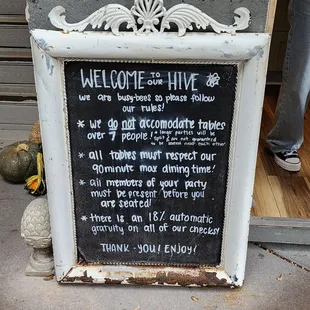 WELCOME TO OUR HIVE
we are busy-bees so please follow
our rules!
* we do not accomodate tables
over 7 people! * larger parties will be
split & are not guaranteed
to be seated near each other
* all tables must respect our
90 minute max dining time!
* All members of your party
must be present before you
are seated!
* there is an 18% automatic
gratuity on all of our checks!
THANK-YOU! ENJOY!